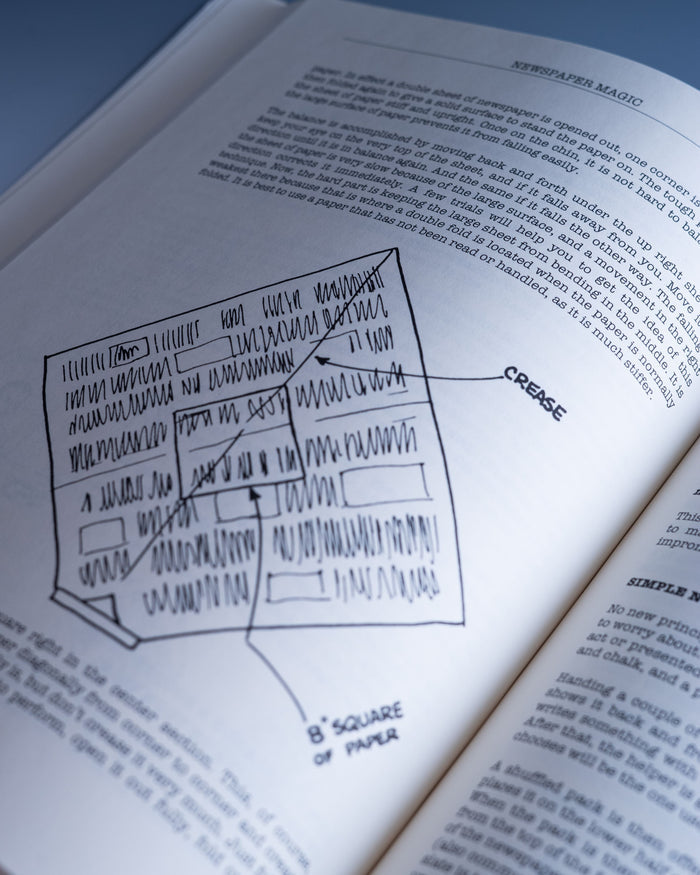 NEWSPAPER MAGIC
paper. In effect a double sheet of newspaper is opened out, one corner is
then folded again to give a solid surface to stand the paper on. The tough
the sheet of paper stiff and upright. Once on the chin, it is not hard to
the large surface of paper prevents it from falling easily.
The balance is accomplished by moving back and forth under the up right
keep your eye on the very top of the sheet, and if it falls away from you. Move
direction until it is in balance again. And the same if it falls the other way. The
the sheet of paper is very slow because of the large surface, and a movement in the
direction corrects it immediately. A few trials will help you to get the idea of this
technique. Now, the hard part is keeping the large sheet from bending in the middle. It is
weakest there because that is where a double fold is located when the paper is normally
folded. It is best to use a paper that has not been read or handled, as it is much stiffer.
CREASE
8" SQUARE
OF PAPER
right in the center section. This, of course,
diagonally from corner to corner and
it, but don't crease it very much. Just
to perform, open it out fully, fold
This
to
SIMPLE
No new
to worry about.
act or presented
and chalk, and a
Handing a couple of
shows it back and
writes something with
After that, the helper is
chooses will be the one
A shuffled pack is then
places it on the lower half
When the pack is then
from the top of the
of the newspaper